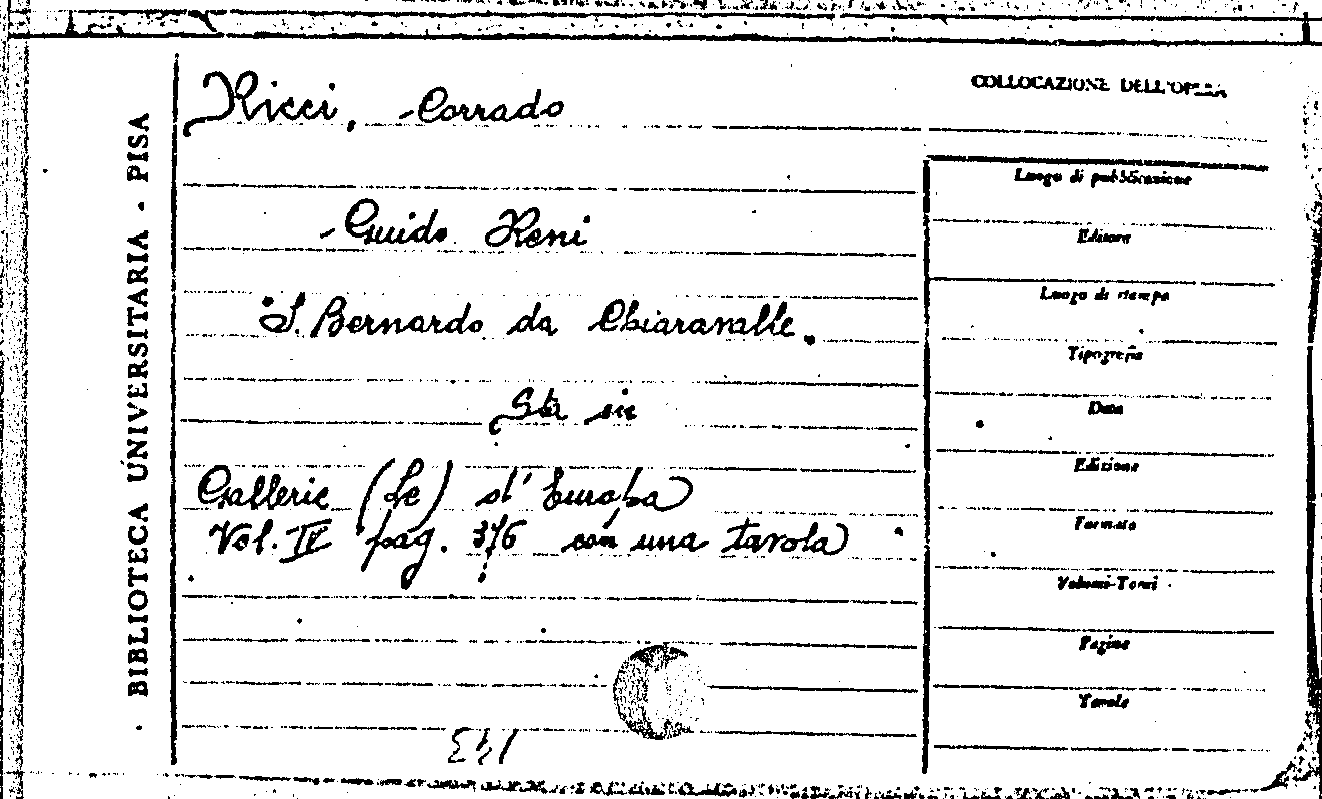 BIBLIOTECA UNIVERSITARIA - PISA
Ricci, Corrado
Guido Reni
S. Bernardo da Chiaravalle.
Sta in
Gallerie (Le) d'Europa
Vol. IV pag. 376 con una tavola
COLLOCAZIONE DELL'OPERA
Luogo di pubblicazione
Editore
Luogo di stampa
Tipografia
Data
Edizione
Formato
Volumi-Tomi
Pagine
Tavole